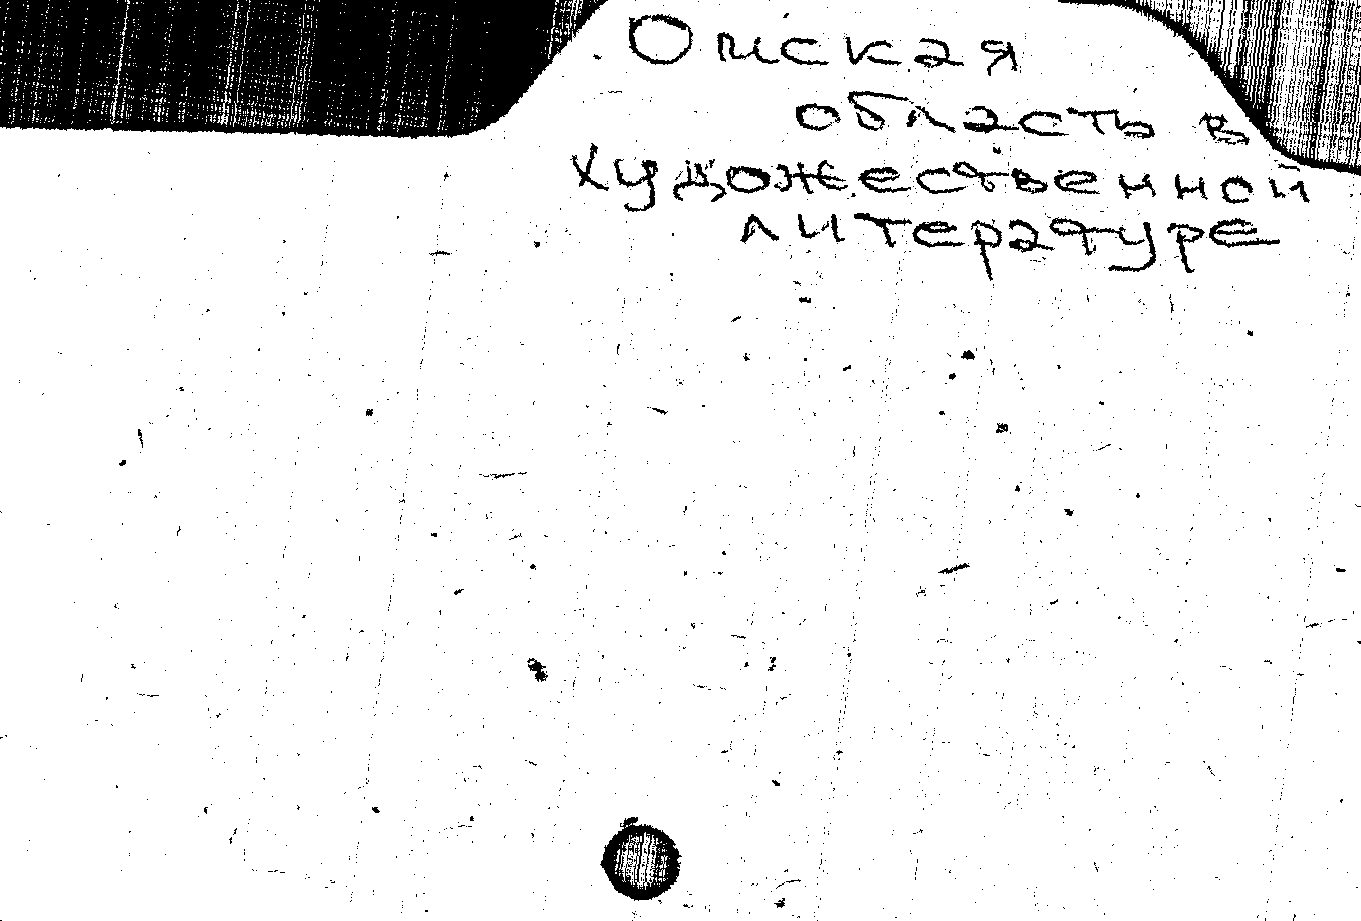 Омская
область в
художественной
литературе